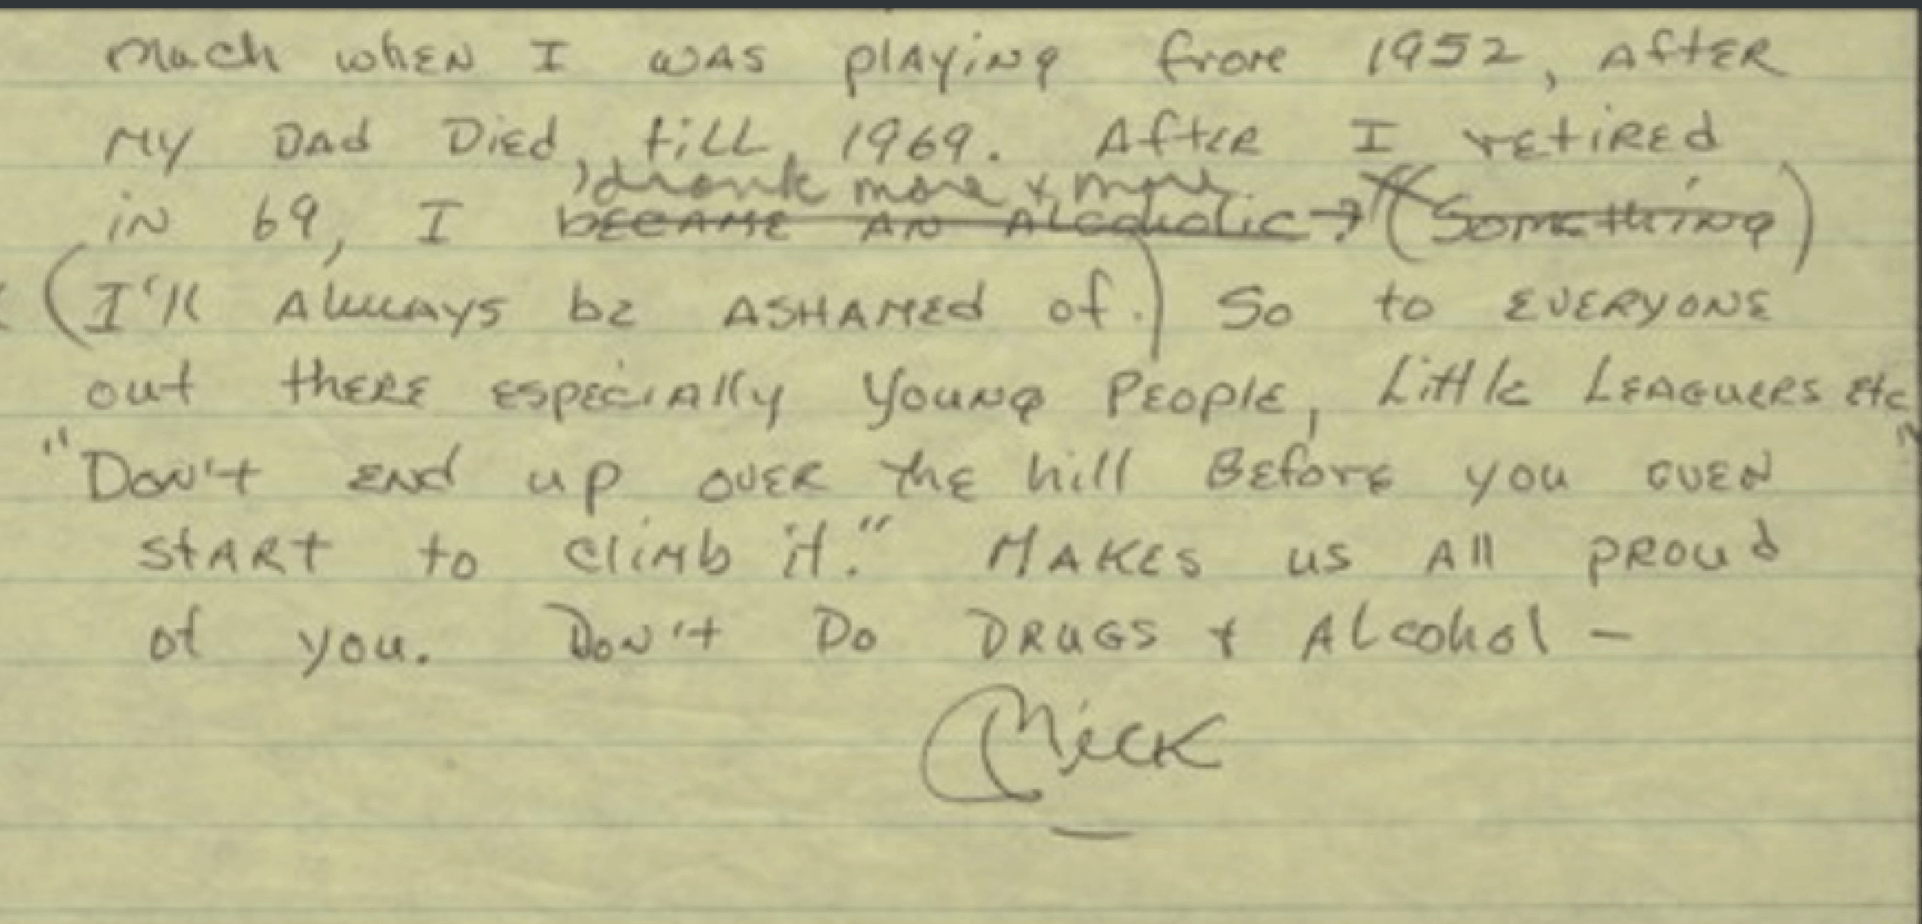 much when I was playing from 1952, after
my Dad Died, till, 1969. After I retired
drank more & more
in 69, I became an alcoholic → (Something)
(I'll always be ashamed of.) So to everyone
out there especially young people, Little Leaguers etc
"Don't end up over the hill Before you even
start to climb it." Makes us all proud
of you. Don't Do Drugs & Alcohol —
Mick